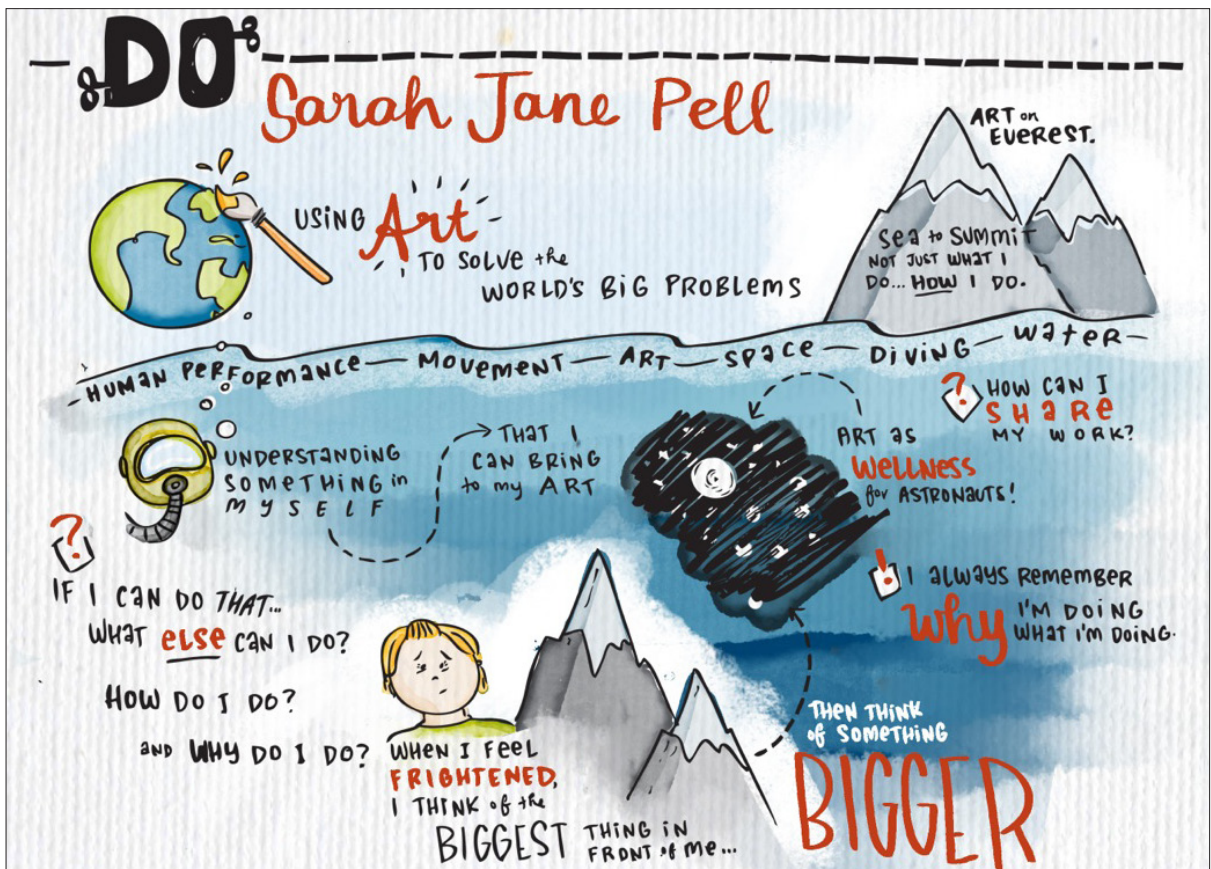 DO
Sarah Jane Pell
USING Art
TO SOLVE the
WORLD'S BIG PROBLEMS
ART on
EVEREST.
Sea to SUMMIT
NOT JUST WHAT I
DO... HOW I DO.
HUMAN PERFORMANCE — MOVEMENT — ART — SPACE — DIVING — WATER —
UNDERSTANDING
SOMETHING in
MYSELF
THAT I
CAN BRING
to my ART
ART as
WELLNESS
for ASTRONAUTS!
? HOW CAN I
SHARE
MY WORK?
?
IF I CAN DO THAT...
WHAT ELSE CAN I DO?
HOW DO I DO?
AND WHY DO I DO?
! I ALWAYS REMEMBER
Why I'M DOING
WHAT I'M DOING.
WHEN I FEEL
FRIGHTENED,
I THINK of the
BIGGEST THING IN
FRONT of ME...
THEN THINK
of SOMETHING
BIGGER